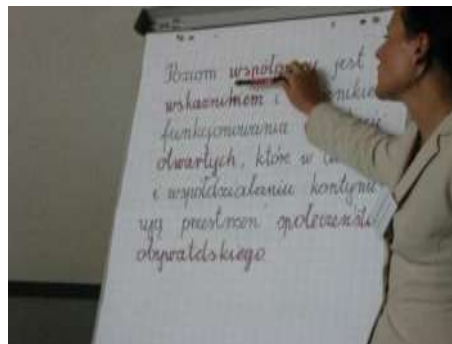 Poziom współpracy jest
wskaźnikiem i
funkcjonowania
otwartych, które w
i współdziałaniu kontynu
ują przestrzeń społeczeńst
obywatelskiego